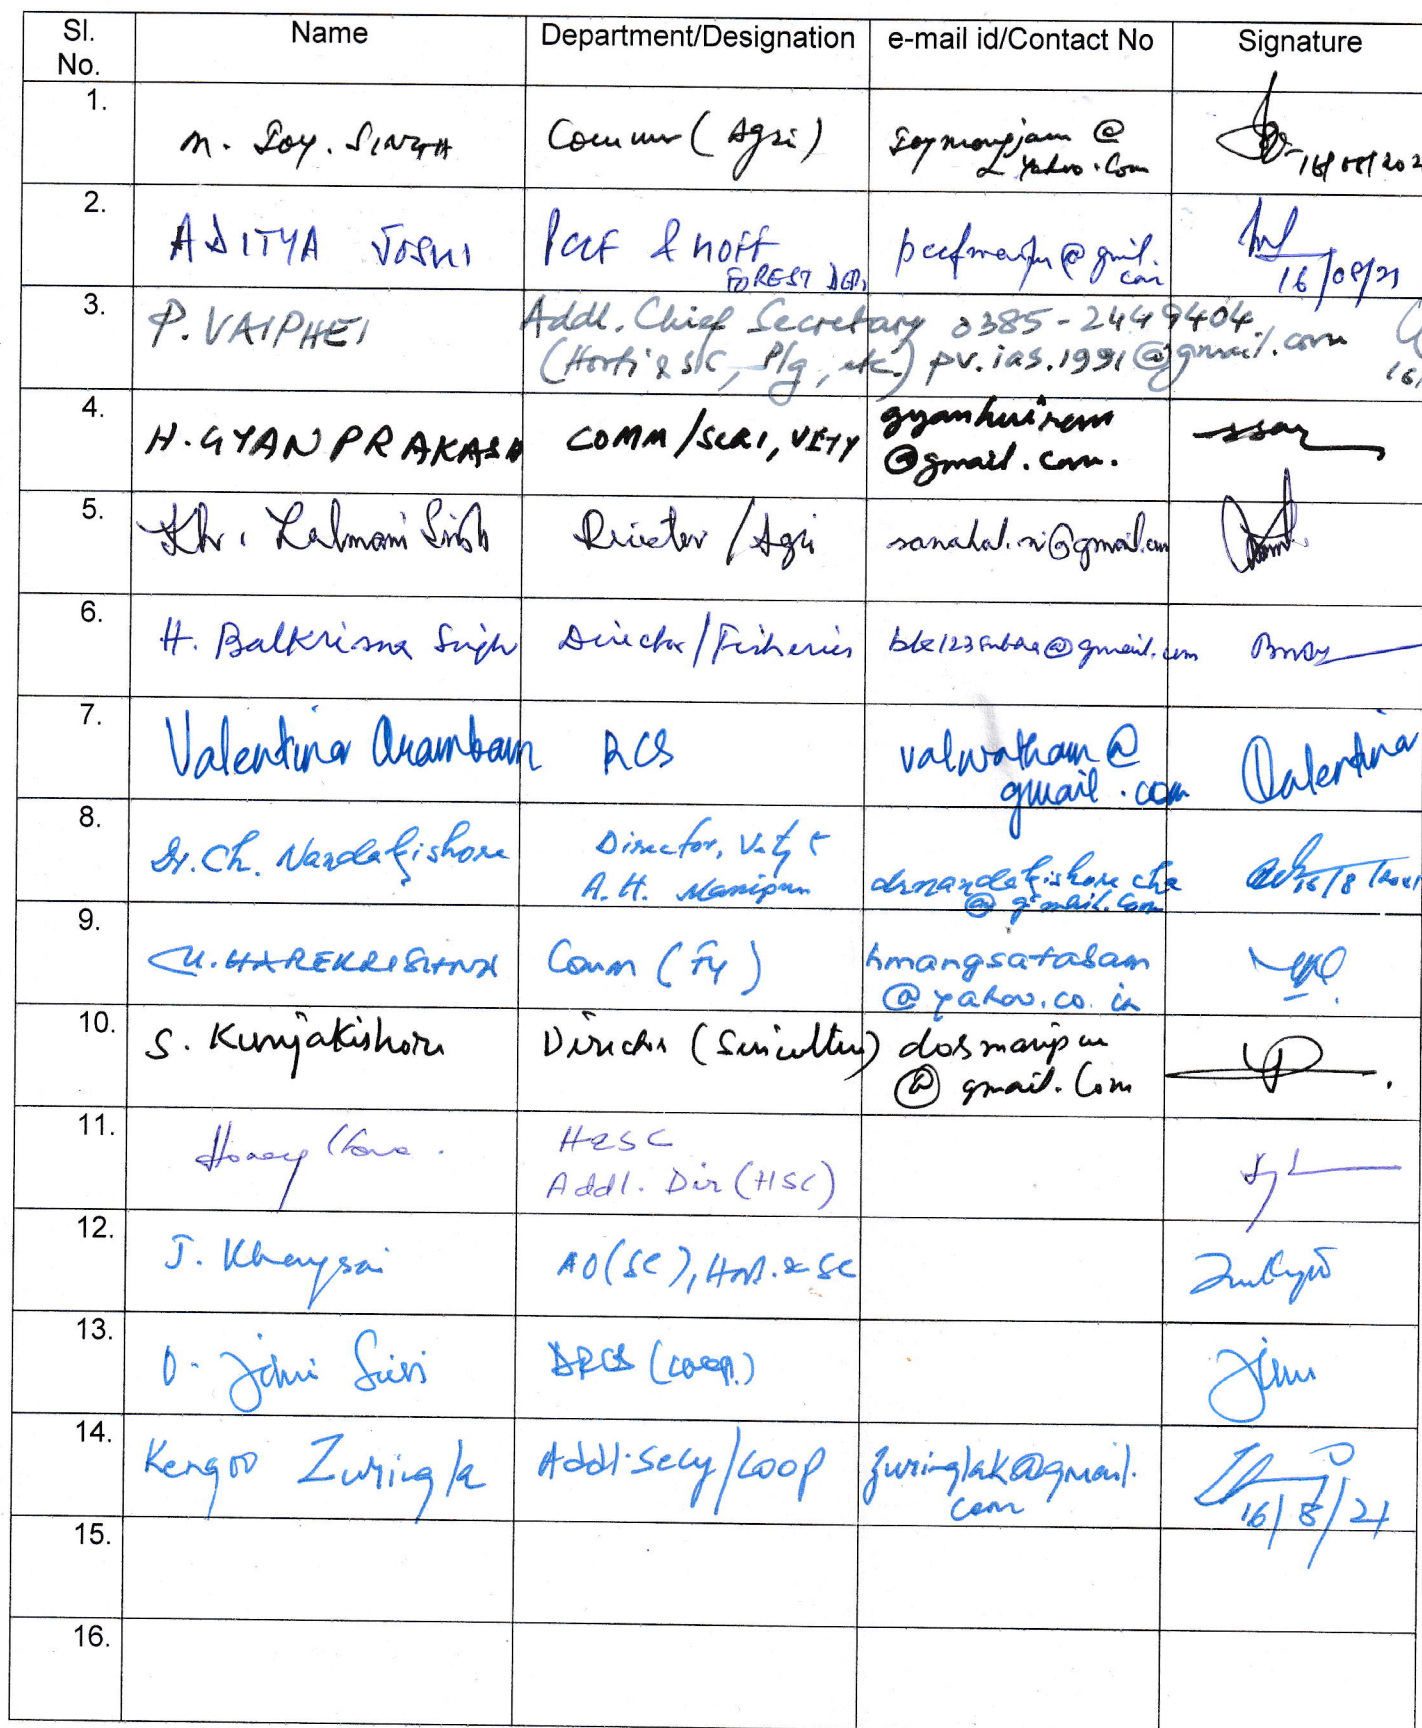 Sl. No. Name Department/Designation e-mail id/Contact No Signature
1. M. Joy. SINGH Commr (Agri) joymongjam @ yahoo.com 16/08/202
2. ADITYA JOSHI PCCF & HOFF FOREST DEPT. 16/08/21
3. P. VAIPHEI Addl. Chief Secretary 0385-2449404
(Horti & S/C, Plg, etc.) pv.ias.1991@gmail.com 16/
4. H. GYAN PRAKASH COMM/SERI, VETY gyanhuirem @gmail.com.
5. Kh. Lalmani Singh Director/Agri
6. H. Balkrisna Singh Director/Fisheries
7. Valentina Arambam RCS valwatham@ gmail.com Valentina
8. Dr. Ch. Nandakishore Director, Vety & A.H. Manipur drnandakishore cha @ gmail.com 16/8/2021
9. M. HAREKRISHNA Comm (Fy) hmangsatabam @ yahoo.co.in
10. S. Kunjakishore Director (Sericulture) dosmanipur @ gmail.com
11. H&SC Addl. Dir (HSC)
12. J. AO(SC), Hort. & SC
13. O. DRCS (Coop.)
14. Kengoo Zuringla Addl. Secy/Coop zuringlak@gmail.com 16/8/21
15.
16.